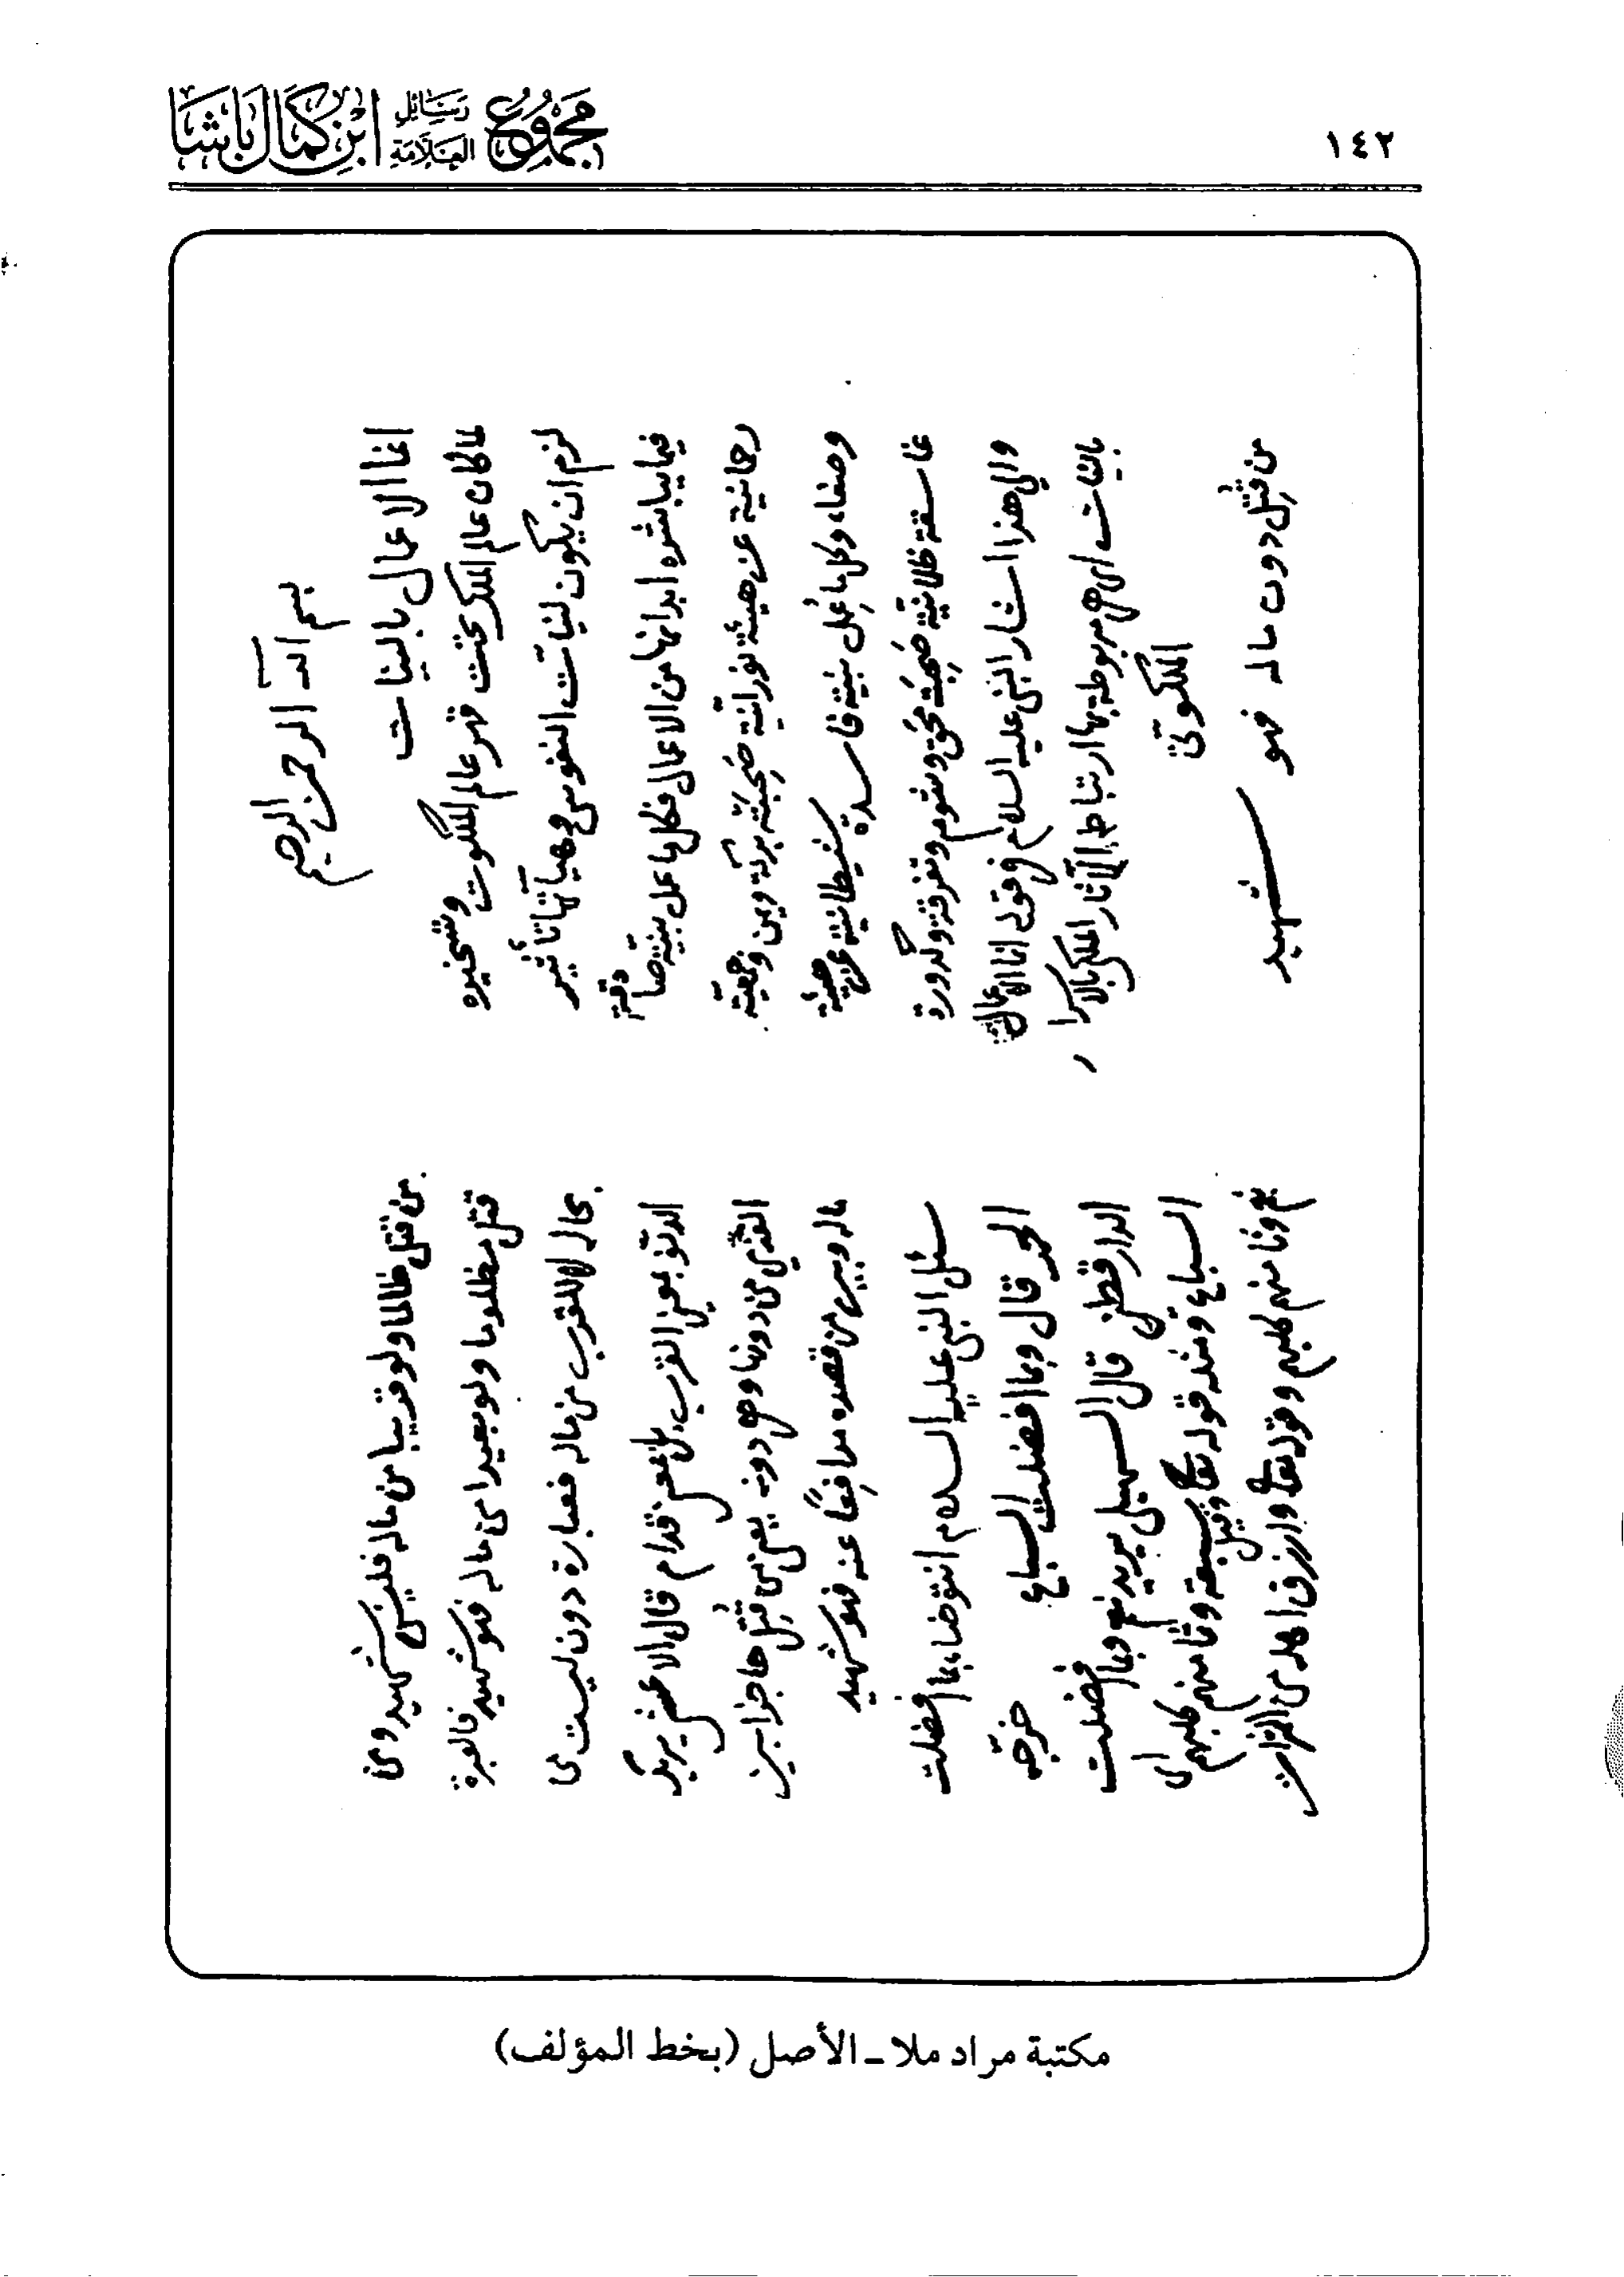 ١٤٢
مجموع رسائل العلامة ابن كمال باشا
بسم الله الرحمن الرحيم
انما الاعمال بالنيات
لما كان عالم الملك تحت قهر عالم الملكوت وتسخيره
لزم ان يكون لنيات النفوس وهيآتها تأثير
فيما يباشره ابدانها من الاعمال فكل ما عمل بنية صادقة
رحمانية عن هيئة نورانية صحبته بركة ويمن وجمعية
وصفاء وكل ما عمل بنية فاسدة شيطانية عن هيئة
غاسقة ظلمانية صحبته محق وشوم وتفرقة وكدورة
والى هذا اشار النبي عليه السلام في قوله انما الاعمال
بالنيات اى هى مربوطة بها ارتباط الآثار الملكى بالاسرار
الملكوتى
من قتل دون ماله فهو شهيد
من قتل ظالما ولو قريبا من ماله فليس شهيد ومن
قتل مظلوما ولو بعيدا من ماله فهو شهيد فالعبرة
بحاله لا للقرب من ماله فعبارة دون ليست من
الدنو بمعنى القرب بل بمعنى قدام قال الاعشى يريك
القذى من دونها وهى دونه يعنى من قتل حاجزا بين
ماله وبين من قصده مدافعا عنه فهو شهيد
سئل النبي عليه السلام انتوضاء بما افضلت
الحمر قال وبما افضلت السباع خرجه
الدارقطنى قال السهيلى يريد نعم وبما افضلت
السباع ومثله قوله تعالى سبعة وثامنهم كلبهم اى
نعم وثامنهم كلبهم وقوله تعالى وارزق اهله من الثمرات
مكتبة مراد ملا - الأصل (بخط المؤلف)